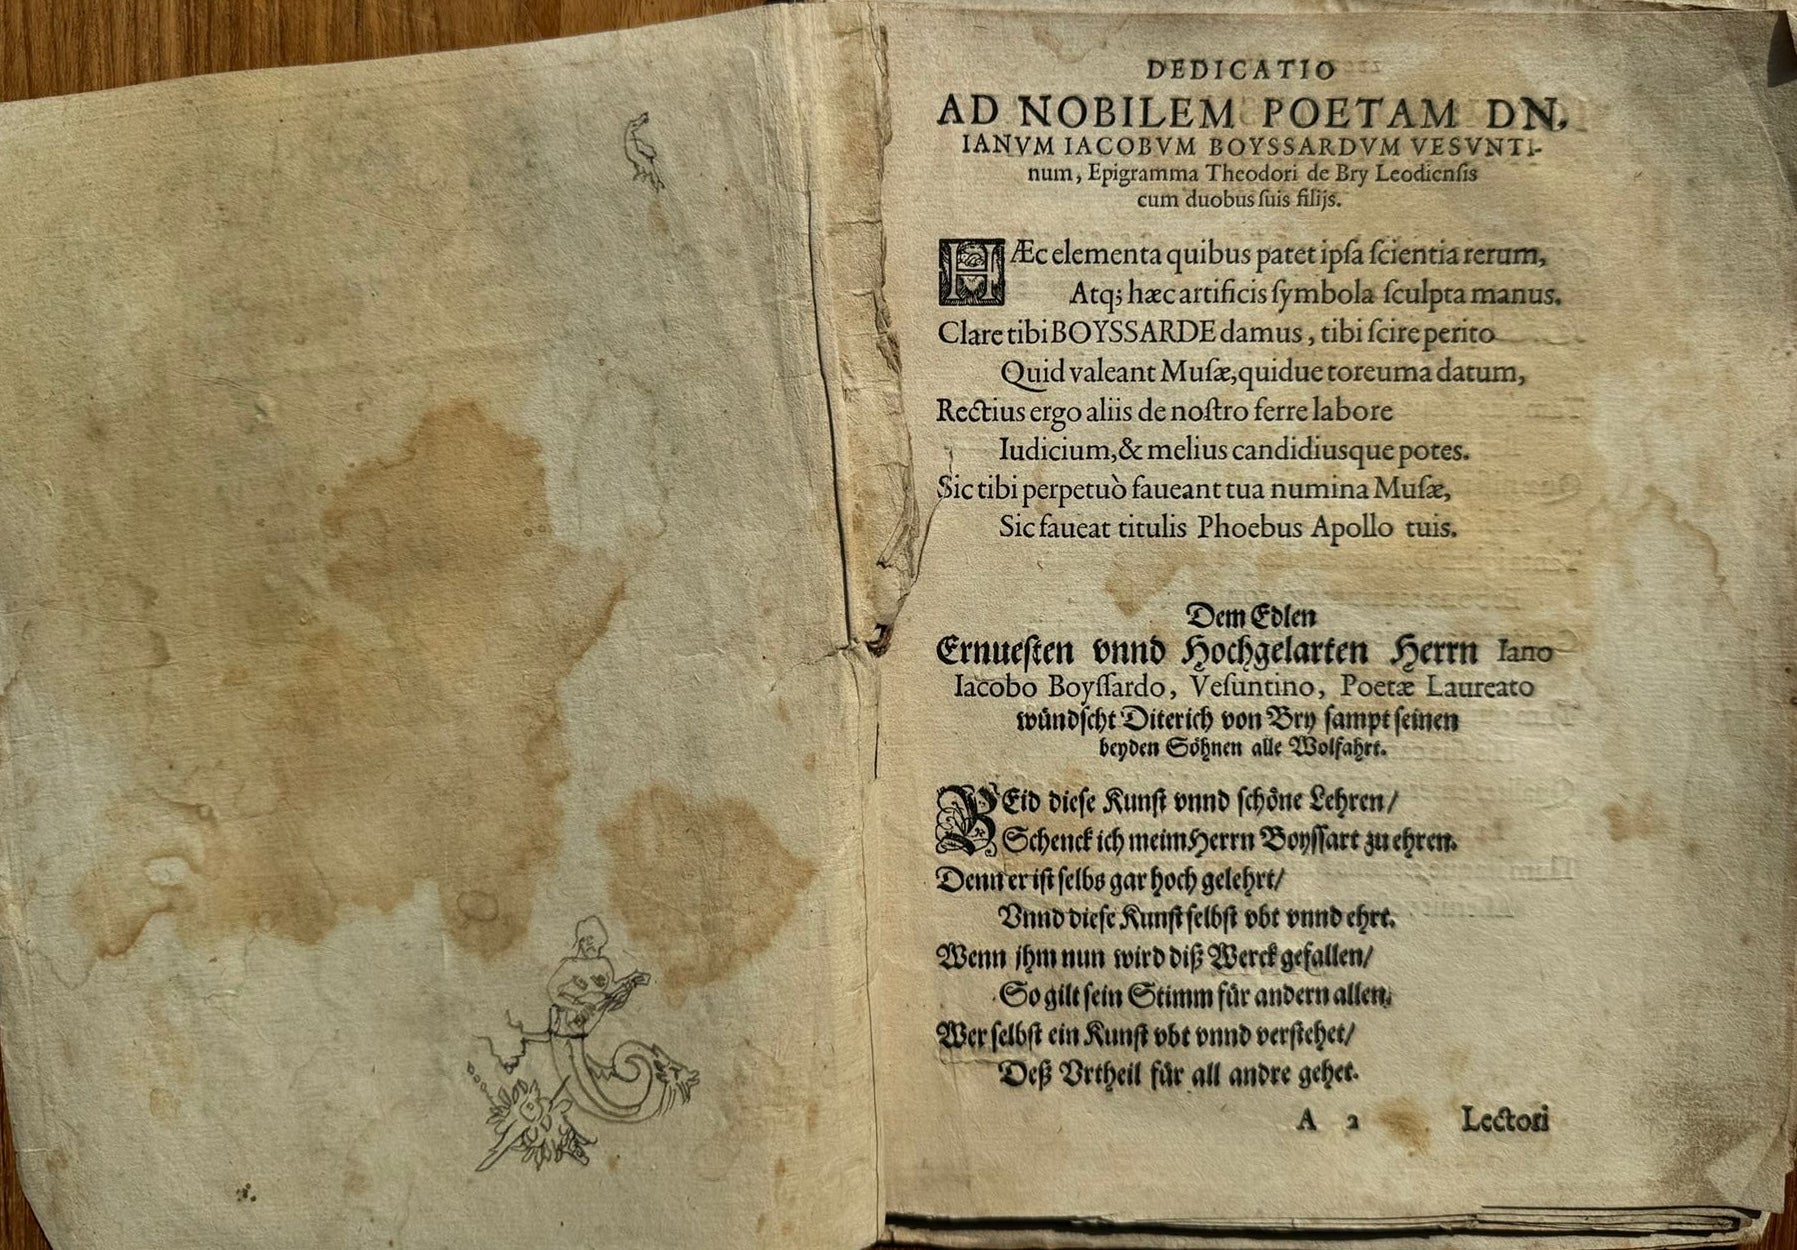 DEDICATIO
AD NOBILEM POETAM DN.
IANVM IACOBVM BOYSSARDVM VESVNTI-
num, Epigramma Theodori de Bry Leodienſis
cum duobus ſuis filijs.
HÆc elementa quibus patet ipſa ſcientia rerum,
Atq; hæc artificis ſymbola ſculpta manus.
Clare tibi BOYSSARDE damus, tibi ſcire perito
Quid valeant Muſæ, quidue toreuma datum,
Rectius ergo aliis de noſtro ferre labore
Iudicium, & melius candidiusque potes.
Sic tibi perpetuò faueant tua numina Muſæ,
Sic faueat titulis Phoebus Apollo tuis.
Dem Edlen
Ernueſten vnnd Hochgelarten Herrn Iano
Iacobo Boyſſardo, Veſuntino, Poetæ Laureato
wündſcht Diterich von Bry ſampt ſeinen
beyden Söhnen alle Wolfahrt.
BEid dieſe Kunſt vnnd ſchöne Lehren/
Schenck ich meim Herrn Boyſſart zu ehren.
Denn er iſt ſelbs gar hoch gelehrt/
Vnnd dieſe Kunſt ſelbſt vbt vnnd ehrt.
Wenn jhm nun wird diß Werck gefallen/
So gilt ſein Stimm für andern allen.
Wer ſelbſt ein Kunſt vbt vnnd verſtehet/
Deß Vrtheil für all andre gehet.
A 2 Lectori